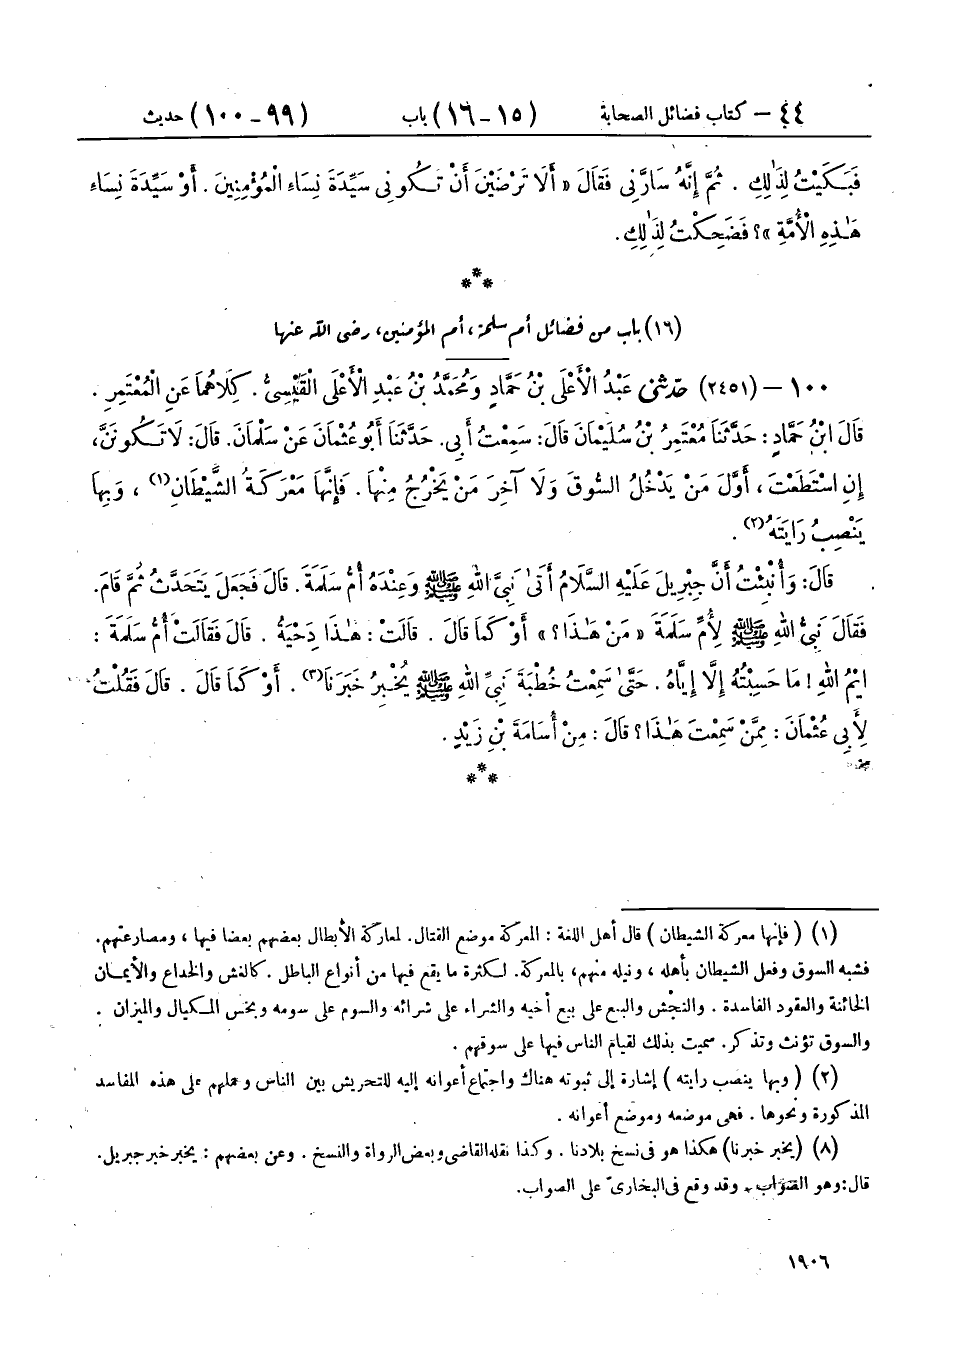 ٤٤ – كتاب فضائل الصحابة (١٥ - ١٦) باب (٩٩ - ١٠٠) حديث
فَبَكَيْتُ لِذَٰلِكِ . ثُمَّ إِنَّهُ سَارَّنِي فَقَالَ « أَلَا تَرْضَيْنَ أَنْ تَكُونِي سَيِّدَةَ نِسَاءِ الْمُؤْمِنِينَ . أَوْ سَيِّدَةَ نِسَاءِ
هَٰذِهِ الْأُمَّةِ »؟ فَضَحِكْتُ لِذَٰلِكِ .
***
(١٦) باب من فضائل أم سلمة ، أم المؤمنين ، رضى الله عنها
١٠٠ – (٢٤٥١) حدّثنى عَبْدُ الْأَعْلَى بْنُ حَمَّادٍ وَمُحَمَّدُ بْنُ عَبْدِ الْأَعْلَى الْقَيْسِيُّ . كِلَاهُمَا عَنِ الْمُعْتَمِرِ .
قَالَ ابْنُ حَمَّادٍ : حَدَّثَنَا مُعْتَمِرُ بْنُ سُلَيْمَانَ قَالَ : سَمِعْتُ أَبِي . حَدَّثَنَا أَبُو عُثْمَانَ عَنْ سَلْمَانَ . قَالَ : لَا تَكُونَنَّ ،
إِنِ اسْتَطَعْتَ ، أَوَّلَ مَنْ يَدْخُلُ السُّوقَ وَلَا آخِرَ مَنْ يَخْرُجُ مِنْهَا . فَإِنَّهَا مَعْرَكَةُ الشَّيْطَانِ(١) ، وَبِهَا
يَنْصِبُ رَايَتَهُ(٢) .
قَالَ : وَأُنْبِئْتُ أَنَّ جِبْرِيلَ عَلَيْهِ السَّلَامُ أَتَىٰ نَبِيَّ اللهِ ﷺ وَعِنْدَهُ أُمُّ سَلَمَةَ . قَالَ فَجَعَلَ يَتَحَدَّثُ ثُمَّ قَامَ .
فَقَالَ نَبِيُّ اللهِ ﷺ لِأُمِّ سَلَمَةَ « مَنْ هَٰذَا ؟ » أَوْ كَمَا قَالَ . قَالَتْ : هَٰذَا دَحْيَةُ . قَالَ فَقَالَتْ أُمُّ سَلَمَةَ :
ايْمُ اللهِ ! مَا حَسِبْتُهُ إِلَّا إِيَّاهُ . حَتَّىٰ سَمِعْتُ خُطْبَةَ نَبِيِّ اللهِ ﷺ يُخْبِرُ خَبَرَنَا(٣) . أَوْ كَمَا قَالَ . قَالَ فَقُلْتُ
لِأَبِي عُثْمَانَ : مِمَّنْ سَمِعْتَ هَٰذَا ؟ قَالَ : مِنْ أُسَامَةَ بْنِ زَيْدٍ .
***
(١) ( فإنها معركة الشيطان ) قال أهل اللغة : المعركة موضع القتال . لمعاركة الأبطال بعضهم بعضا فيها ، ومصارعتهم .
فشبه السوق وفعل الشيطان بأهله ، ونيله منهم ، بالمعركة . لكثرة ما يقع فيها من أنواع الباطل . كالغش والخداع والأيمان
الخائنة والعقود الفاسدة . والنجش والبيع على بيع أخيه والشراء على شرائه والسوم على سومه وبخس المكيال والميزان .
والسوق تؤنث وتذكر . سميت بذلك لقيام الناس فيها على سوقهم .
(٢) ( وبها ينصب رايته ) إشارة إلى ثبوته هناك واجتماع أعوانه إليه للتحريش بين الناس وعملهم على هذه المفاسد
المذكورة ونحوها . فهى موضعه وموضع أعوانه .
(٨) ( يخبر خبرنا ) هكذا هو فى نسخ بلادنا . وكذا نقله القاضى وبعض الرواة والنسخ . وعن بعضهم : يخبر خبر جبريل .
قال : وهو الصواب . وقد وقع فى البخارىّ على الصواب .
١٩٠٦